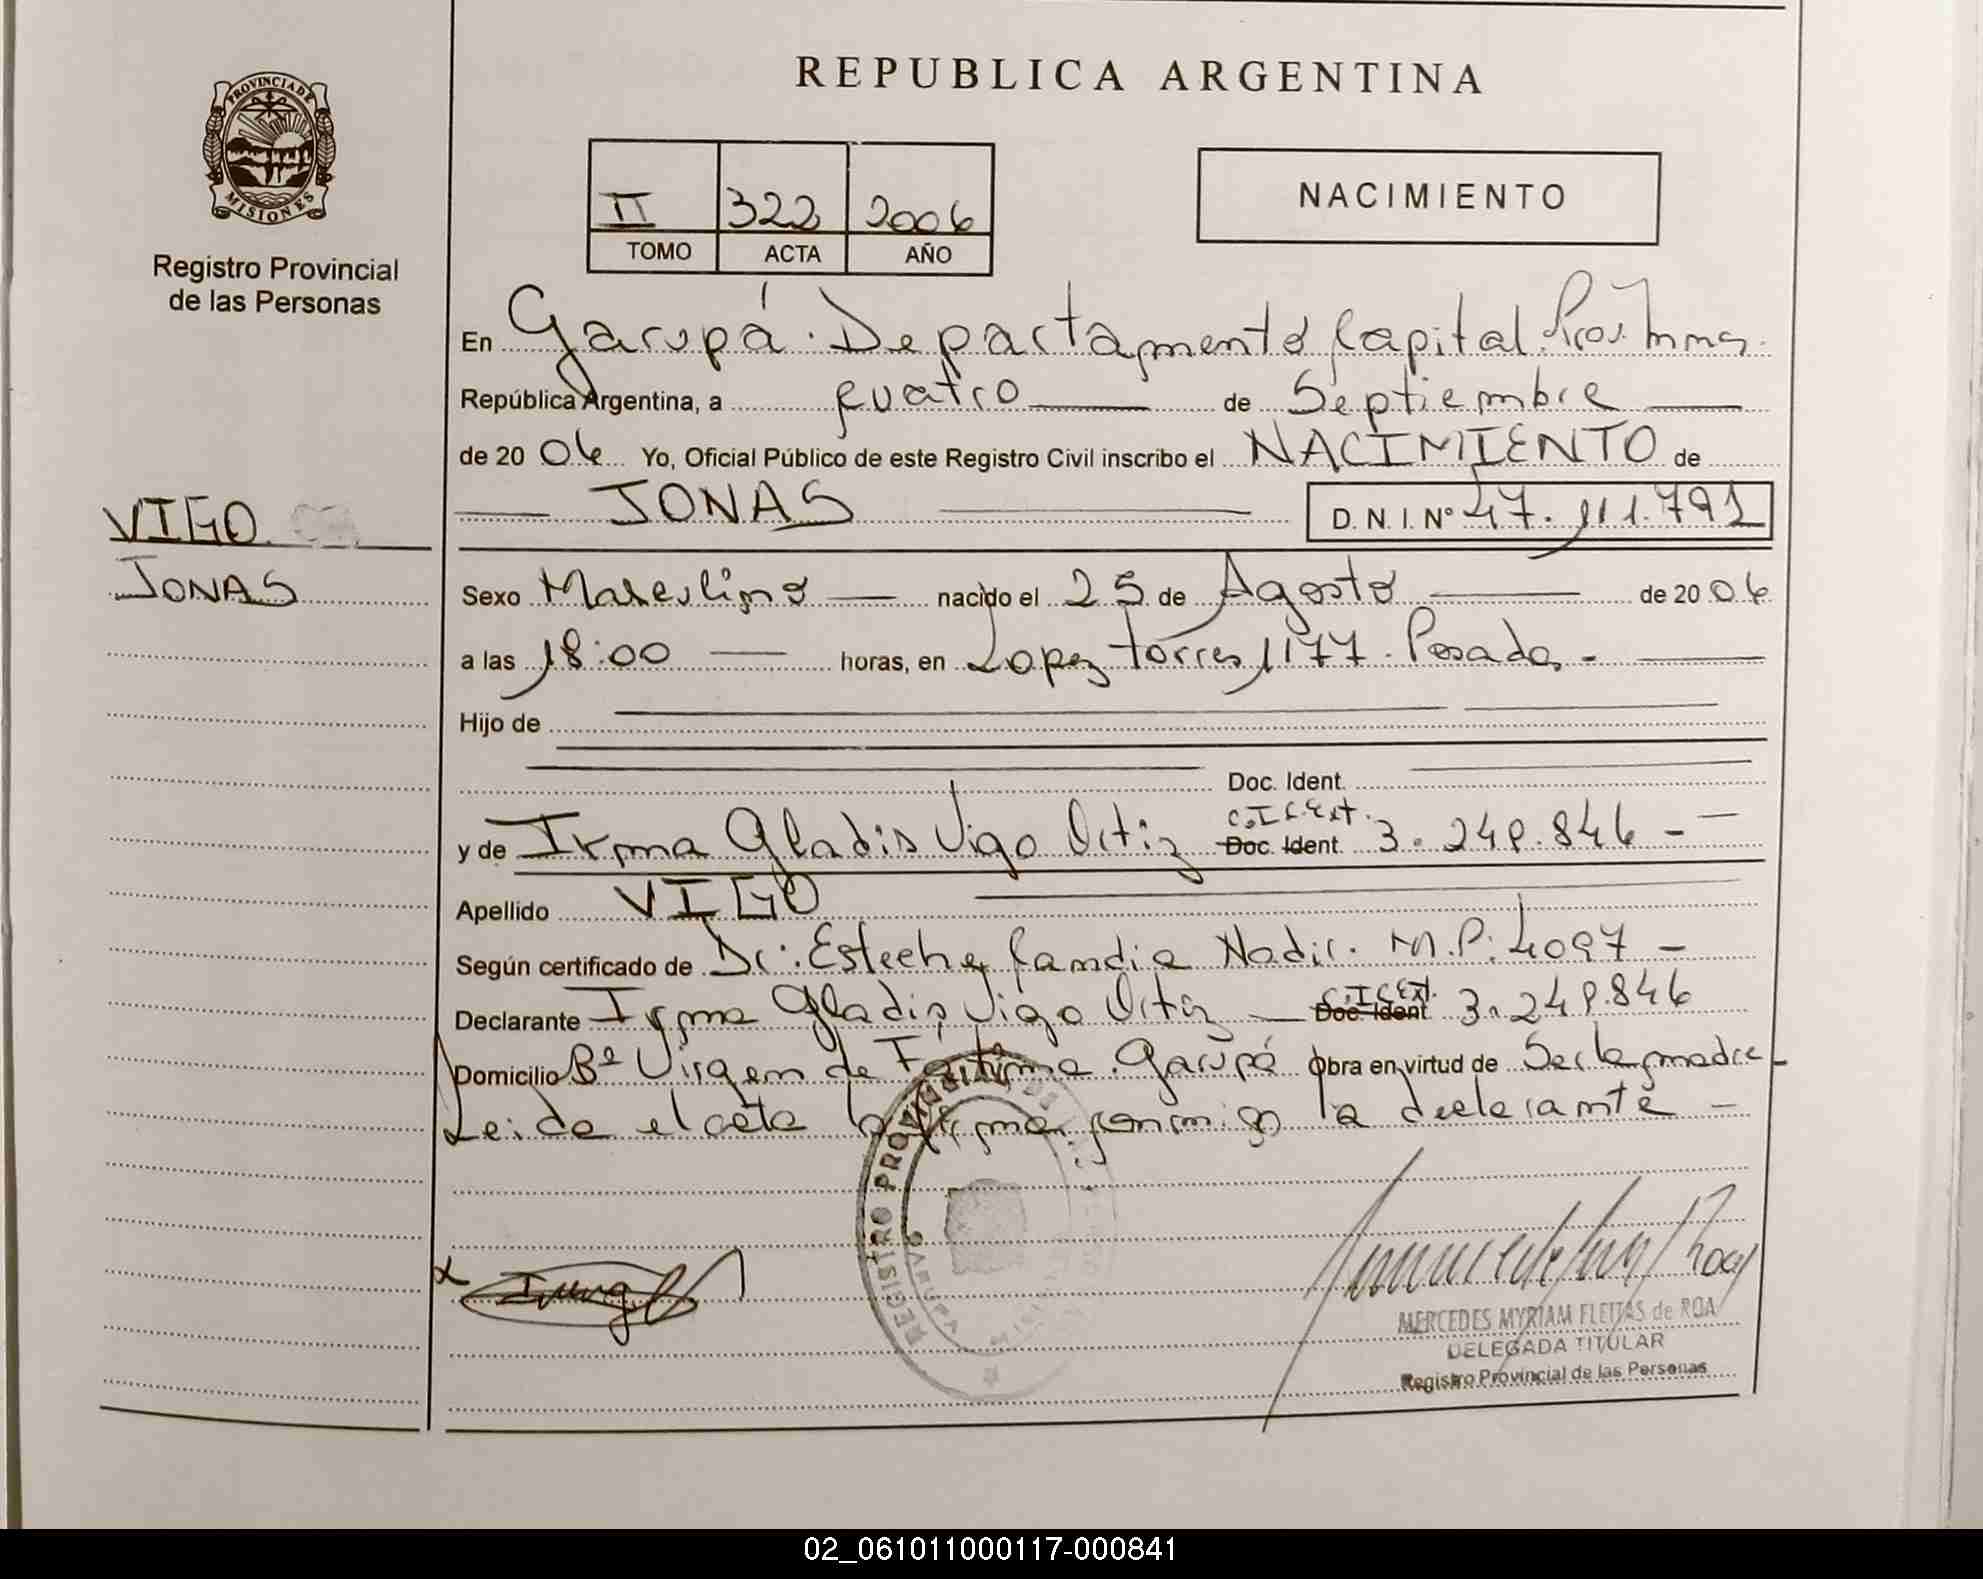 REPUBLICA ARGENTINA
PROVINCIA DE
MISIONES
Registro Provincial
de las Personas
II 322 2006
TOMO ACTA AÑO
NACIMIENTO
En Garupá. Departamento Capital.
República Argentina, a cuatro de Septiembre
de 20 06 Yo, Oficial Público de este Registro Civil inscribo el NACIMIENTO de
JONAS D. N. I. Nº 47.111.791
VIGO
JONAS
Sexo Masculino nacido el 25 de Agosto de 20 06
a las 18:00 horas, en Lopez Torres 1177. Posadas.
Hijo de
Doc. Ident.
y de Irma Gladis Vigo Ortiz Doc. Ident. C.I.C.Ext. 3.249.846
Apellido VIGO
Según certificado de Dr: Nadir. M.P: 4097
Declarante Irma Gladis Vigo Ortiz Doc. Ident C.I.C.Ext. 3.249.846
Domicilio Bº Virgen de Fátima. Garupá Obra en virtud de Ser la madre
Leida el acta la firma conmigo la declarante
REGISTRO PROVINCIAL DE
GARUPA
MERCEDES MYRIAM FLEITAS de ROA
DELEGADA TITULAR
Registro Provincial de las Personas
02_061011000117-000841